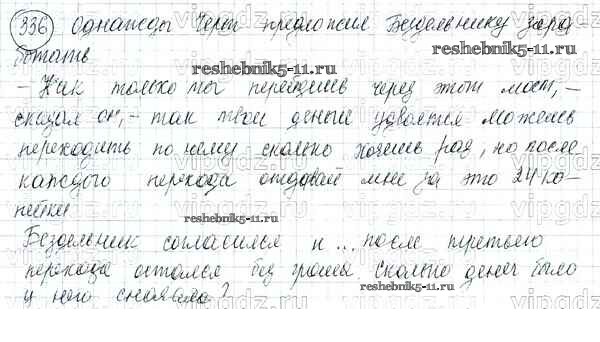 336 Однажды Черт предложил Бездельнику зара
ботать
reshebnik5-11.ru
reshebnik5-11.ru
- Как только ты перейдешь через этот мост, -
сказал он, - так твои деньги удвоятся можешь
переходить по нему сколько хочешь раз, но после
каждого перехода отдавай мне за это 24 ко-
пейки
reshebnik5-11.ru
Бездельник согласился и ... после третьего
перехода остался без гроша сколько денег было
у него сначала?
reshebnik5-11.ru
vipgdz.ru